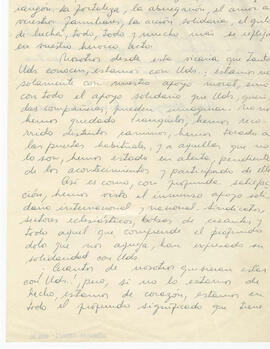 coraje, la fortaleza, la abnegación, el amor a
nuestros familiares, la acción solidaria, el grito
de lucha, todo, todo y mucho más se refleja
en vuestro heroico acto.
Nosotros desde esta vicaría que tanto
Uds. conocen, estamos con Uds.; estamos no
solamente con nuestro apoyo moral, sino
con todo el apoyo solidario que Uds., queri-
das compañeras, pueden imaginar: no nos
hemos quedado tranquilos, hemos reco-
rrido distintos caminos, hemos tocado a
las puertas habituales, y a aquellas que no
lo son, hemos estado en alerta, pendiente
de los acontecimientos y participado de ellos
Así es como, con profunda satisfac-
ción, hemos visto el inmenso apoyo soli-
dario internacional y nacional. Sindicatos,
sectores eclesiásticos, bolsas de cesantes, y
todo aquel que comprende el profundo
dolor que nos aqueja, han expresado su
solidaridad con Uds.
Cuantos de nosotros quisieran estar
con Uds., pero, si no lo estamos de
hecho, estamos de corazón, estamos en
todo el profundo significado que tiene